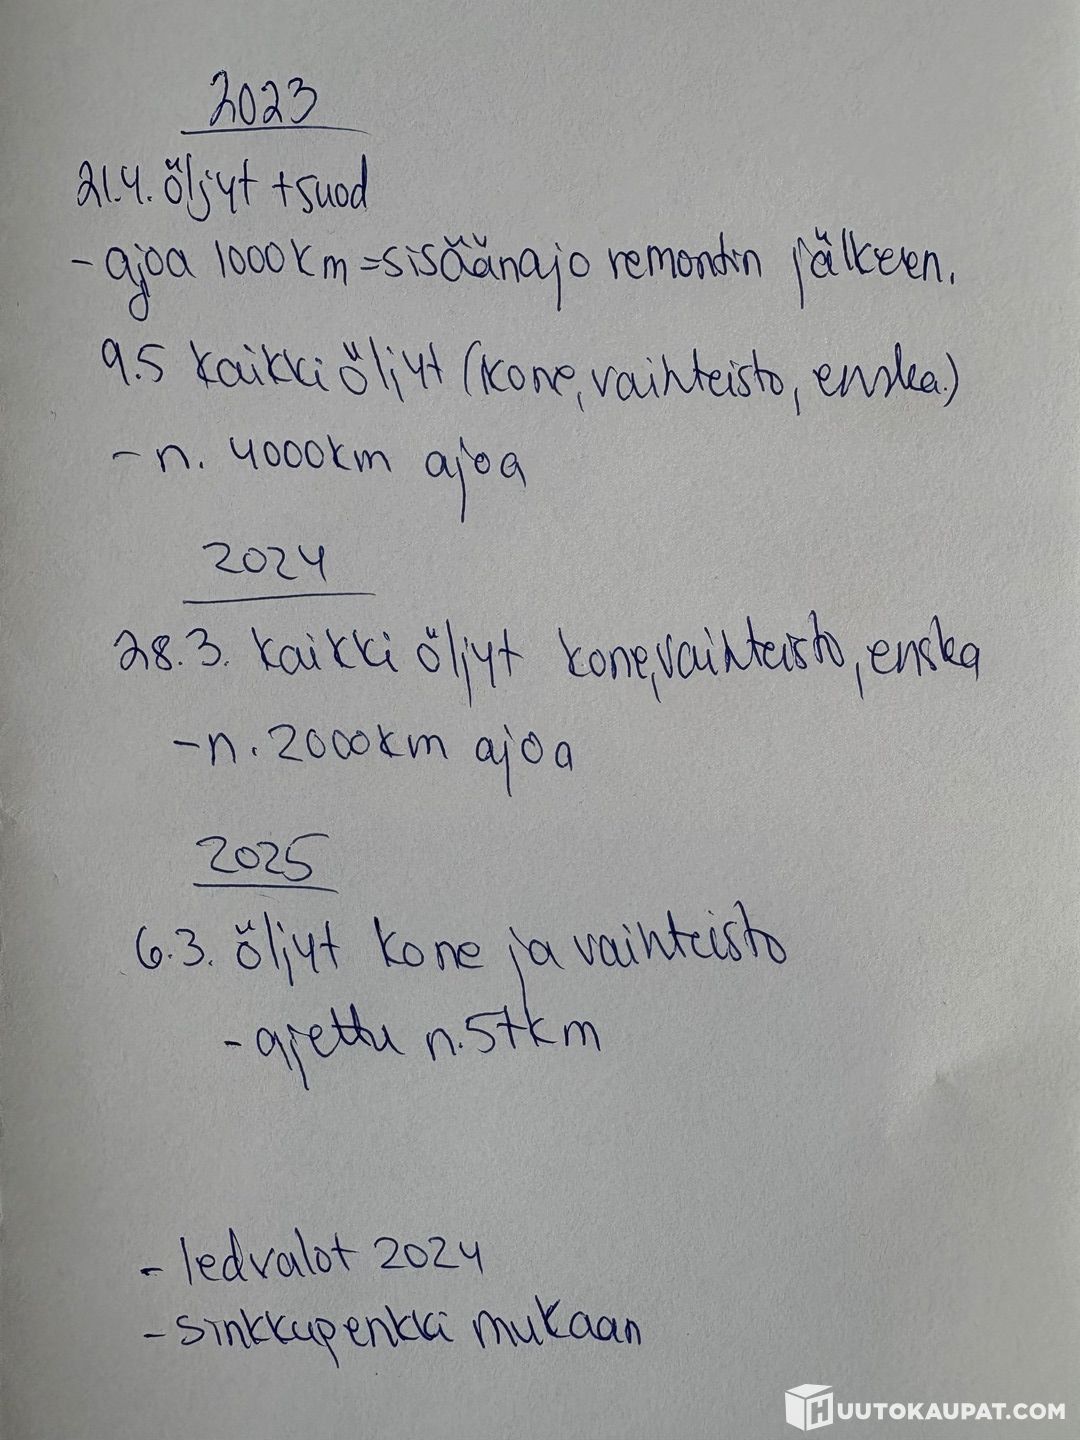 2023
21.4. öljyt + suod
- ajoa 1000km = sisäänajo remontin jälkeen.
9.5 kaikki öljyt (kone, vaihteisto, enska.)
- n. 4000km ajoa
2024
28.3. kaikki öljyt kone, vaihteisto, enska
- n. 2000km ajoa
2025
6.3. öljyt kone ja vaihteisto
- ajettu n. 5tkm
- ledvalot 2024
- sinkkupenkki mukaan
HUUTOKAUPAT.COM